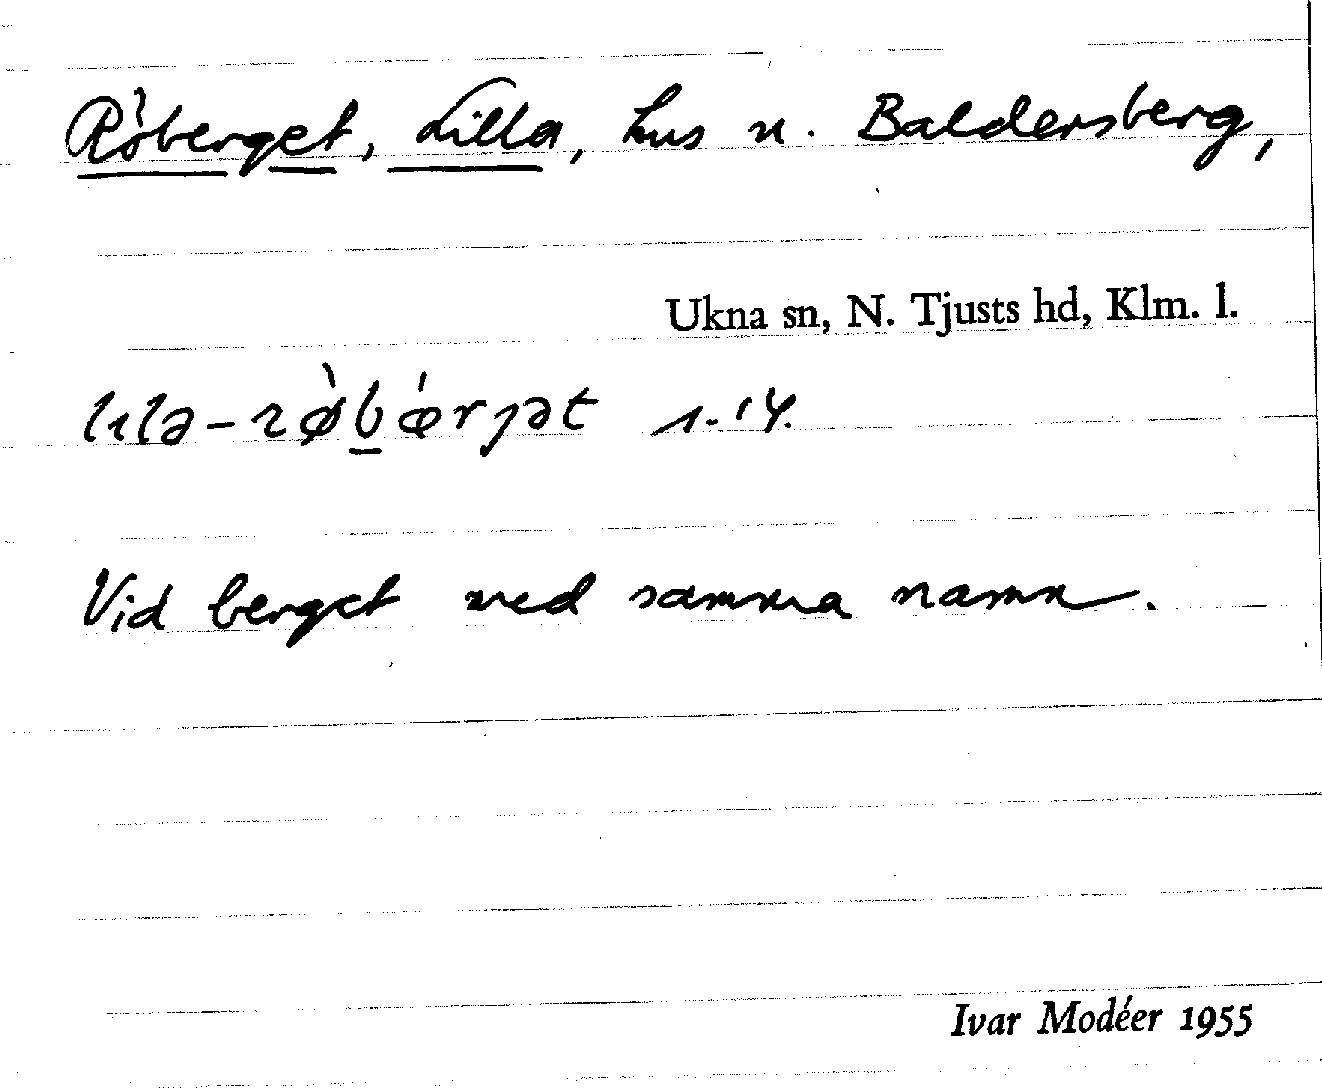 Röberget, Lilla, hus n. Baldersberg,
Ukna sn, N. Tjusts hd, Klm. l.
lɩlə-rø̀bǽrɟət s. 14.
Vid berget med samma namn.
Ivar Modéer 1955